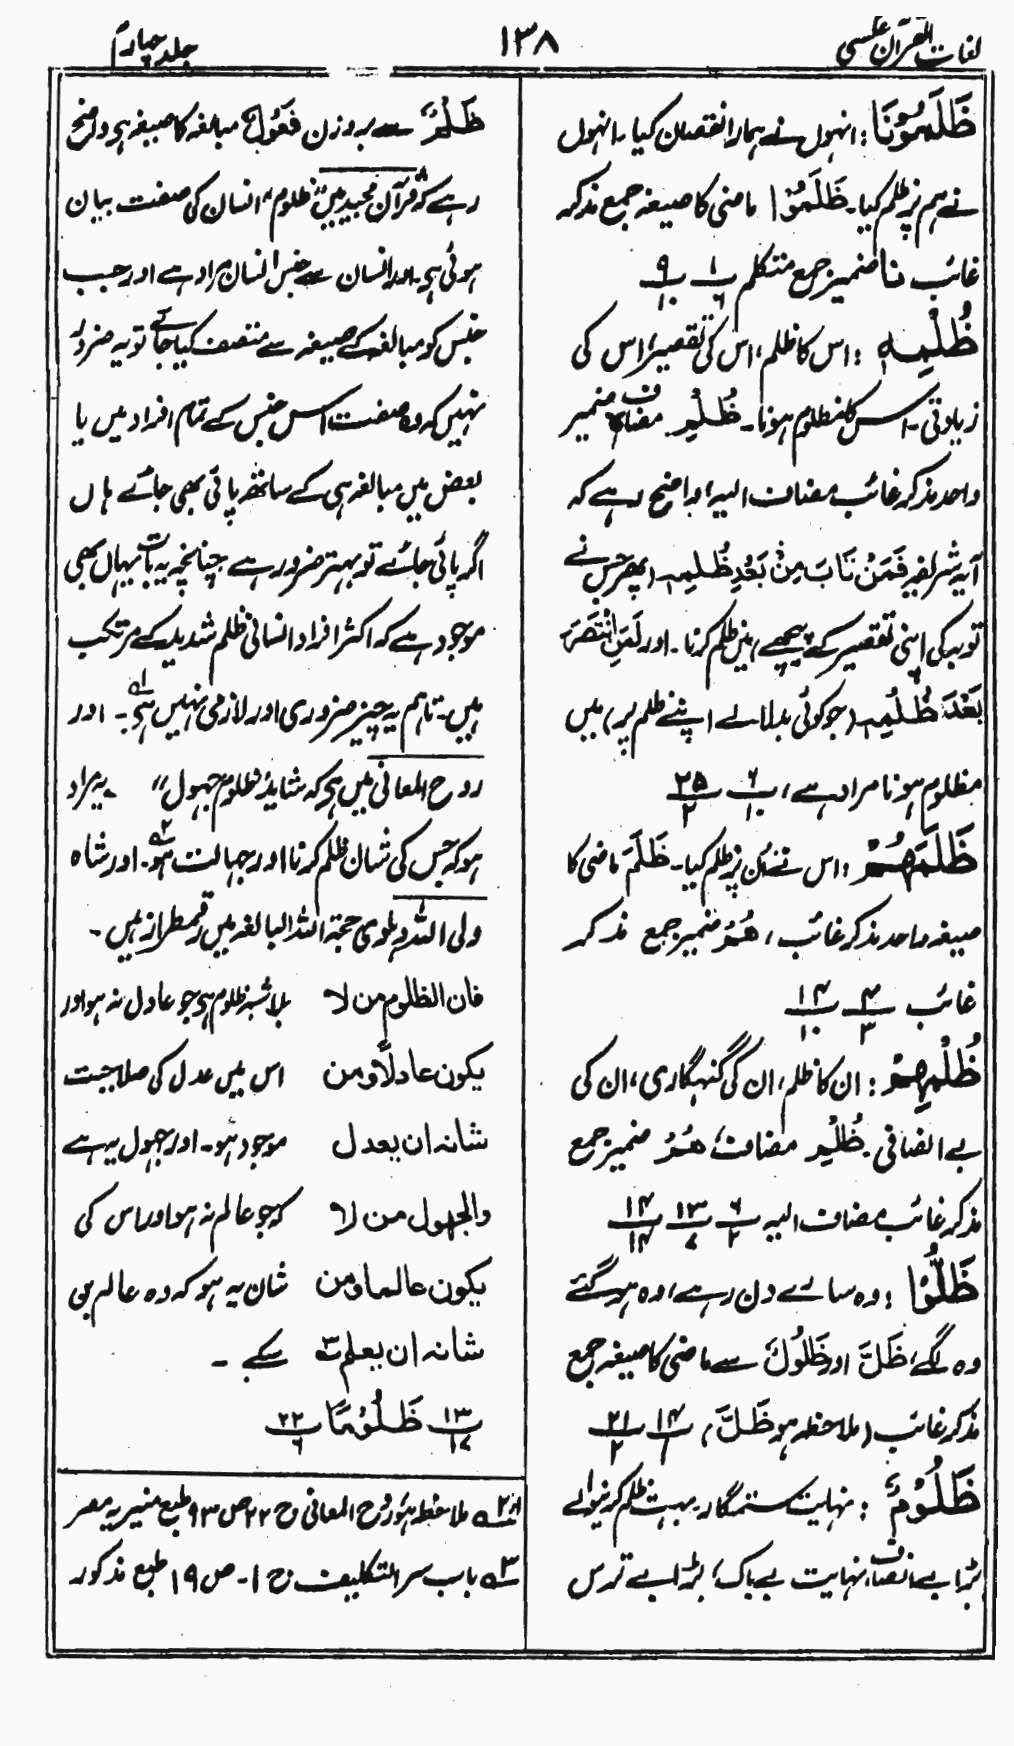 لغات القرآن عکسی
۱۳۸
جلد چہارم
ظَلَمُوْنَا : انہوں نے ہمارا نقصان کیا۔ انہوں
نے ہم پر ظلم کیا۔ ظَلَمُوْا ماضی کا صیغہ جمع مذکر
غائب نا ضمیر جمع متکلم ۱/۶ ۹/۱۰
ظُلْمِہٖ : اس کا ظلم، اس کی تقصیر، اس کی
زیادتی۔ اس کا مظلوم ہونا۔ ظُلْمِ مضاف ہ ضمیر
واحد مذکر غائب مضاف الیہ، واضح رہے کہ
آیہ شریفہ فَمَنْ تَابَ مِنْ بَعْدِ ظُلْمِہٖ (پھر جس نے
توبہ کی اپنی تقصیر کے پیچھے) میں ظلم کرنا۔ اور لَمَنِ انْتَصَرَ
بَعْدَ ظُلْمِہٖ (جو کوئی بدلا لے اپنے ظلم پر) میں
مظلوم ہونا مراد ہے، ۶/۱۰ ۲۵/۲
ظَلَمَھُمْ : اس نے اُن پر ظلم کیا۔ ظَلَمَ ماضی کا
صیغہ واحد مذکر غائب، ھُمْ ضمیر جمع مذکر
غائب ۴/۳ ۱۴/۱۰
ظُلْمِھِمْ : ان کا ظلم، ان کی گنہگاری، ان کی
بے انصافی۔ ظُلْمِ مضاف، ھُمْ ضمیر جمع
مذکر غائب مضاف الیہ ۶/۲ ۱۳/۷ ۱۴/۱۴
ظَلُّوْا : وہ سارے دن رہے، وہ ہو گئے
وہ لگے، ظَلَّ اور ظُلُوْلٌ سے ماضی کا صیغہ جمع
مذکر غائب (ملاحظہ ہو ظَلَّ) ۱۴/۱ ۲۱/۲
ظَلُوْمٌ : نہایت ستمگار، بہت ظلم کرنیوالے
بڑا بے انصاف، نہایت بے باک، بڑا بے ترس
ظُلْمٌ سے بروزن فَعُوْلٌ مبالغہ کا صیغہ ہی واضح
رہے کہ قرآن مجید میں، ظلوم، انسان کی صفت بیان
ہوئی ہی۔ اور انسان سے جنس انسان مراد ہے اور جب
جنس کو مبالغہ کے صیغہ سے متصف کیا جائے تو یہ ضرور
نہیں کہ وہ صفت اس جنس کے تمام افراد میں یا
بعض میں مبالغہ ہی کے ساتھ پائی بھی جائے ہاں
اگر پائی جائے تو بہتر ضرور ہے چنانچہ یہ بات یہاں بھی
موجود ہے کہ اکثر افراد انسانی ظلم شدید کے مرتکب
ہیں۔ تاہم یہ چیز ضروری اور لازمی نہیں ہے۱ہ۔ اور
روح المعانی میں ہی کہ شاید "ظلوم جہول" یہ مراد
ہو کہ جس کی شان ظلم کرنا اور جہالت ہو۲ہ۔ اور شاہ
ولی اللہ دہلوی حجۃ اللہ البالغہ میں رقمطراز ہیں۔
فان الظلوم من لا بلا شبہ ظلوم ہی جو عادل نہ ہو اور
یکون عادلًا ومن اس میں عدل کی صلاحیت
شانہ ان یعدل موجود ہو۔ اور جہول یہ ہے
والجھول من لا کہ جو عالم نہ ہو اور اس کی
یکون عالما ومن شان یہ ہو کہ وہ عالم بن
شانہ ان یعلم۳ہ سکے۔
۱۳/۱۷ ظَلُوْمًا ۲۲/۶
۱و۲ہ ملاحظہ ہو روح المعانی ج ۲۲ ص ۹۳ طبع منیریہ مصر
۳ہ باب سر التکلیف ج ۱۔ ص ۱۹ طبع مذکور